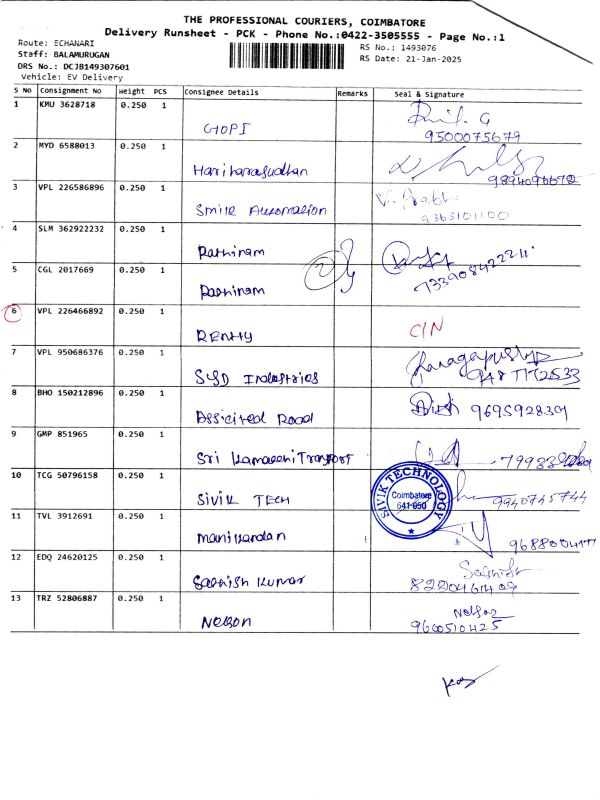 THE PROFESSIONAL COURIERS, COIMBATORE
Delivery Runsheet - PCK - Phone No.:0422-3505555 - Page No.:1
Route: ECHANARI
Staff: BALAMURUGAN
DRS No.: DCJB149307601
Vehicle: EV Delivery
RS No.: 1493076
RS Date: 21-Jan-2025
S No Consignment No Weight PCS Consignee Details Remarks Seal & Signature
1 KMU 3628718 0.250 1 GOPI
9500075679
2 MYD 6588013 0.250 1 Hariharasudhan
3 VPL 226586896 0.250 1 Smile Automation
9363101100
4 SLM 362922232 0.250 1 Rathinam
2
5 CGL 2017669 0.250 1 Rathinam
733908422211
6 VPL 226466892 0.250 1
C/N
7 VPL 950686376 0.250 1 Industries
8 BHO 150212896 0.250 1 Road
9695928391
9 GMP 851965 0.250 1 Sri Kamacchi Transport
10 TCG 50796158 0.250 1 SIVIK TECH
SIVIK TECHNOLOGY
Coimbatore
641 050
9940745744
11 TVL 3912691 0.250 1 Manikandan
12 EDQ 24620125 0.250 1 Sathish Kumar
Sathish
8220461409
13 TRZ 52806887 0.250 1 Nelson
Nelson
9600510425